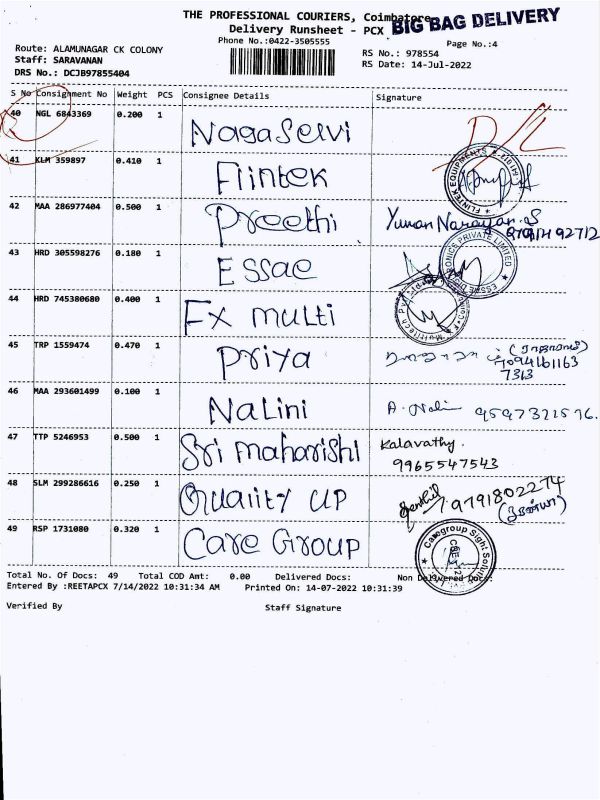 THE PROFESSIONAL COURIERS, Coimbatore
BIG BAG DELIVERY
Delivery Runsheet - PCX
Phone No.:0422-3505555
Page No.:4
Route: ALAMUNAGAR CK COLONY
RS No.: 978554
Staff: SARAVANAN
RS Date: 14-Jul-2022
DRS No.: DCJB97855404
S No Consignment No Weight PCS Consignee Details Signature
40 NGL 6843369 0.200 1 Naga Selvi
41 KLM 359897 0.410 1 Flintek
FLINTEK EQUIPMENTS
42 MAA 286977404 0.500 1 Preethi Yuvan Narayan.S
43 HRD 305598276 0.180 1 ESSae
PRIVATE LIMITED
44 HRD 745380680 0.400 1 Fx multi
45 TRP 1559474 0.470 1 Priya
7094161163
7313
46 MAA 293601499 0.100 1 Nalini A. Nalini 9597321576.
47 TTP 5246953 0.500 1 Sri maharishi Kalavathy.
9965547543
48 SLM 299286616 0.250 1 Quality UP Senthil 9791802274
49 RSP 1731080 0.320 1 Care Group
Caregroup Sight
Total No. Of Docs: 49 Total COD Amt: 0.00 Delivered Docs: Non Delivered Docs:
Entered By :REETAPCX 7/14/2022 10:31:34 AM Printed On: 14-07-2022 10:31:39
Verified By Staff Signature